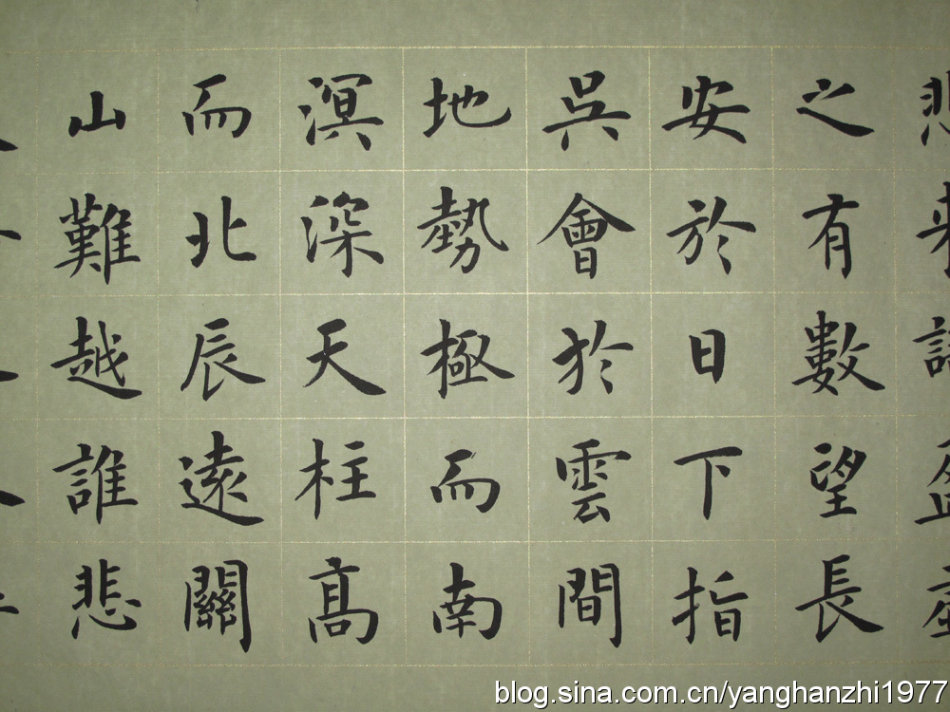 之有數望長
安於日下指
吳會於雲間
地勢極而南
溟深天柱髙
而北辰遠關
山難越誰悲
blog.sina.com.cn/yanghanzhi1977